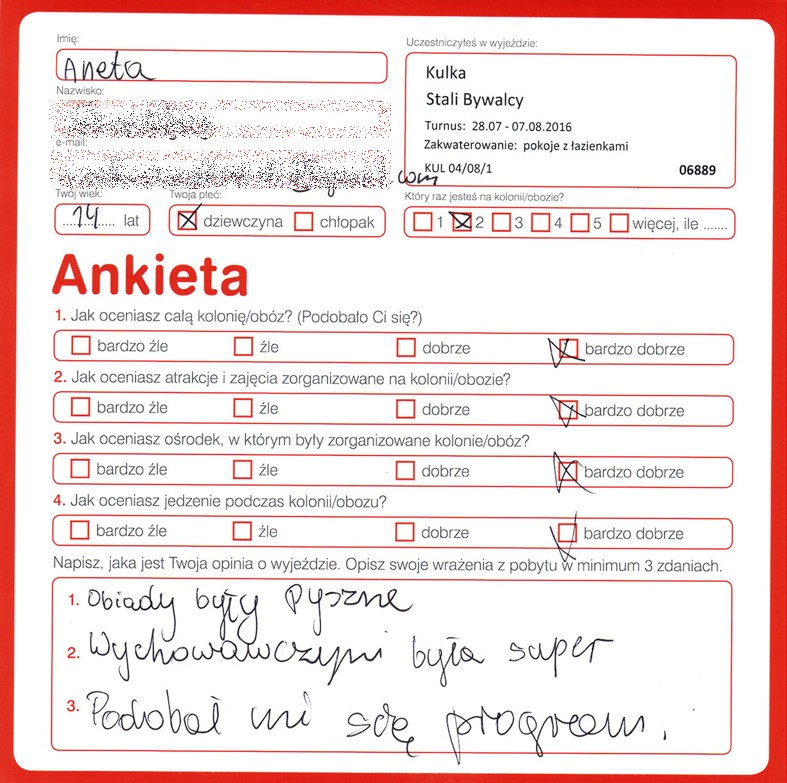 Imię:
Aneta
Nazwisko:
e-mail:
.com
Twój wiek:
14 lat
Twoja płeć:
dziewczyna chłopak
Uczestniczyłeś w wyjeździe:
Kulka
Stali Bywalcy
Turnus: 28.07 - 07.08.2016
Zakwaterowanie: pokoje z łazienkami
KUL 04/08/1 06889
Który raz jesteś na kolonii/obozie?
1 2 3 4 5 więcej, ile .......
Ankieta
1. Jak oceniasz całą kolonię/obóz? (Podobało Ci się?)
bardzo źle źle dobrze bardzo dobrze
2. Jak oceniasz atrakcje i zajęcia zorganizowane na kolonii/obozie?
bardzo źle źle dobrze bardzo dobrze
3. Jak oceniasz ośrodek, w którym były zorganizowane kolonie/obóz?
bardzo źle źle dobrze bardzo dobrze
4. Jak oceniasz jedzenie podczas kolonii/obozu?
bardzo źle źle dobrze bardzo dobrze
Napisz, jaka jest Twoja opinia o wyjeździe. Opisz swoje wrażenia z pobytu w minimum 3 zdaniach.
1. Obiady były Pyszne
2. Wychowawczyni była super
3. Podobał mi się program.